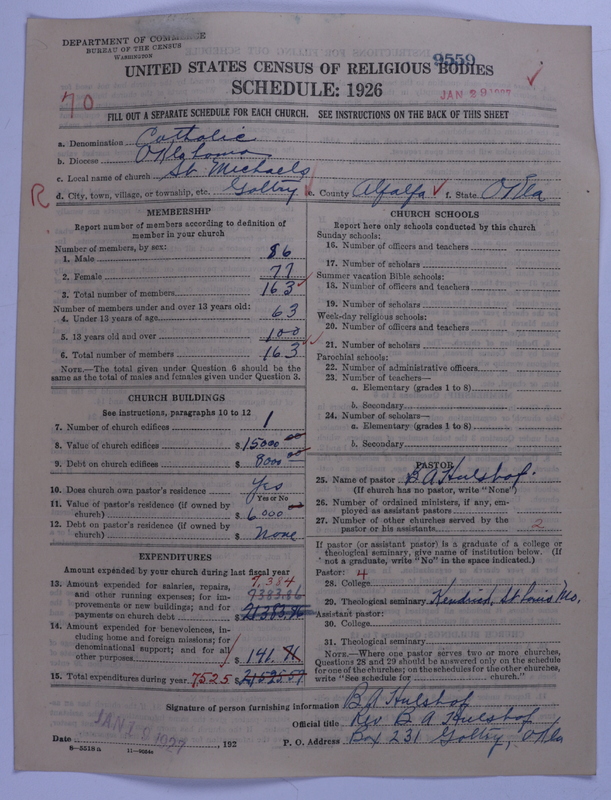 DEPARTMENT OF COMMERCE
BUREAU OF THE CENSUS
WASHINGTON
9559
UNITED STATES CENSUS OF RELIGIOUS BODIES
SCHEDULE: 1926
JAN 29 1927
70
FILL OUT A SEPARATE SCHEDULE FOR EACH CHURCH. SEE INSTRUCTIONS ON THE BACK OF THIS SHEET
a. Denomination Catholic
b. Diocese Oklahoma
c. Local name of church St. Michaels
R d. City, town, village, or township, etc. Goltry e. County Alfalfa f. State Okla
MEMBERSHIP
Report number of members according to definition of
member in your church
Number of members, by sex:
1. Male 86
2. Female 77
3. Total number of members 163
Number of members under and over 13 years old:
4. Under 13 years of age 63
5. 13 years old and over 100
6. Total number of members 163
NOTE.—The total given under Question 6 should be the
same as the total of males and females given under Question 3.
CHURCH BUILDINGS
See instructions, paragraphs 10 to 12
7. Number of church edifices 1
8. Value of church edifices $ 15000 00
9. Debt on church edifices $ 8000 00
10. Does church own pastor's residence Yes
Yes or No
11. Value of pastor's residence (if owned by
church) $ 6000
12. Debt on pastor's residence (if owned by
church) $ None
EXPENDITURES
Amount expended by your church during last fiscal year
7,384
13. Amount expended for salaries, repairs,
and other running expenses; for im-
provements or new buildings; and for
payments on church debt
9383.86
14. Amount expended for benevolences, in-
cluding home and foreign missions; for
denominational support; and for all
other purposes $ 141.
15. Total expenditures during year 7525 $
CHURCH SCHOOLS
Report here only schools conducted by this church
Sunday schools:
16. Number of officers and teachers
17. Number of scholars
Summer vacation Bible schools:
18. Number of officers and teachers
19. Number of scholars
Week-day religious schools:
20. Number of officers and teachers
21. Number of scholars
Parochial schools:
22. Number of administrative officers
23. Number of teachers—
a. Elementary (grades 1 to 8)
b. Secondary
24. Number of scholars—
a. Elementary (grades 1 to 8)
b. Secondary
PASTOR
25. Name of pastor B A Hulshof.
(If church has no pastor, write "None")
26. Number of ordained ministers, if any, em-
ployed as assistant pastors
27. Number of other churches served by the
pastor or his assistants 2
If pastor (or assistant pastor) is a graduate of a college or
theological seminary, give name of institution below. (If
not a graduate, write "No" in the space indicated.)
Pastor: 4
28. College
29. Theological seminary Kendrick, St Louis Mo.
Assistant pastor:
30. College
31. Theological seminary
NOTE.—Where one pastor serves two or more churches,
Questions 28 and 29 should be answered only on the schedule
for one of the churches; on the schedules for the other churches,
write "See schedule for church."
Signature of person furnishing information B A Hulshof
Official title Rev B A Hulshof
Date JAN 19 1927, 192 P. O. Address Box 231 Goltry, Okla
8—5518a 11—9554a